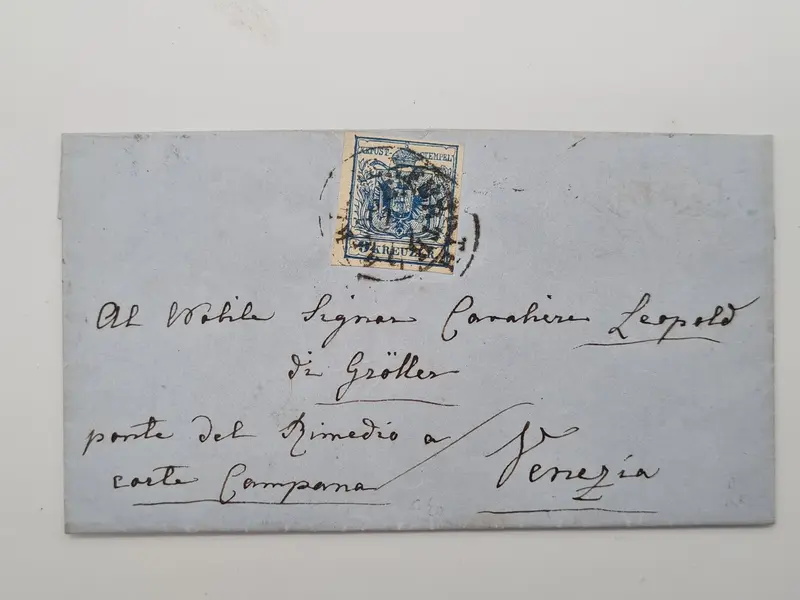 KKPOST-STEMPEL
9 KREUZER
Al Nobile Signor Cavaliere Leopold
di Gröller
ponte del Rimedio a
corte Campana
Venezia